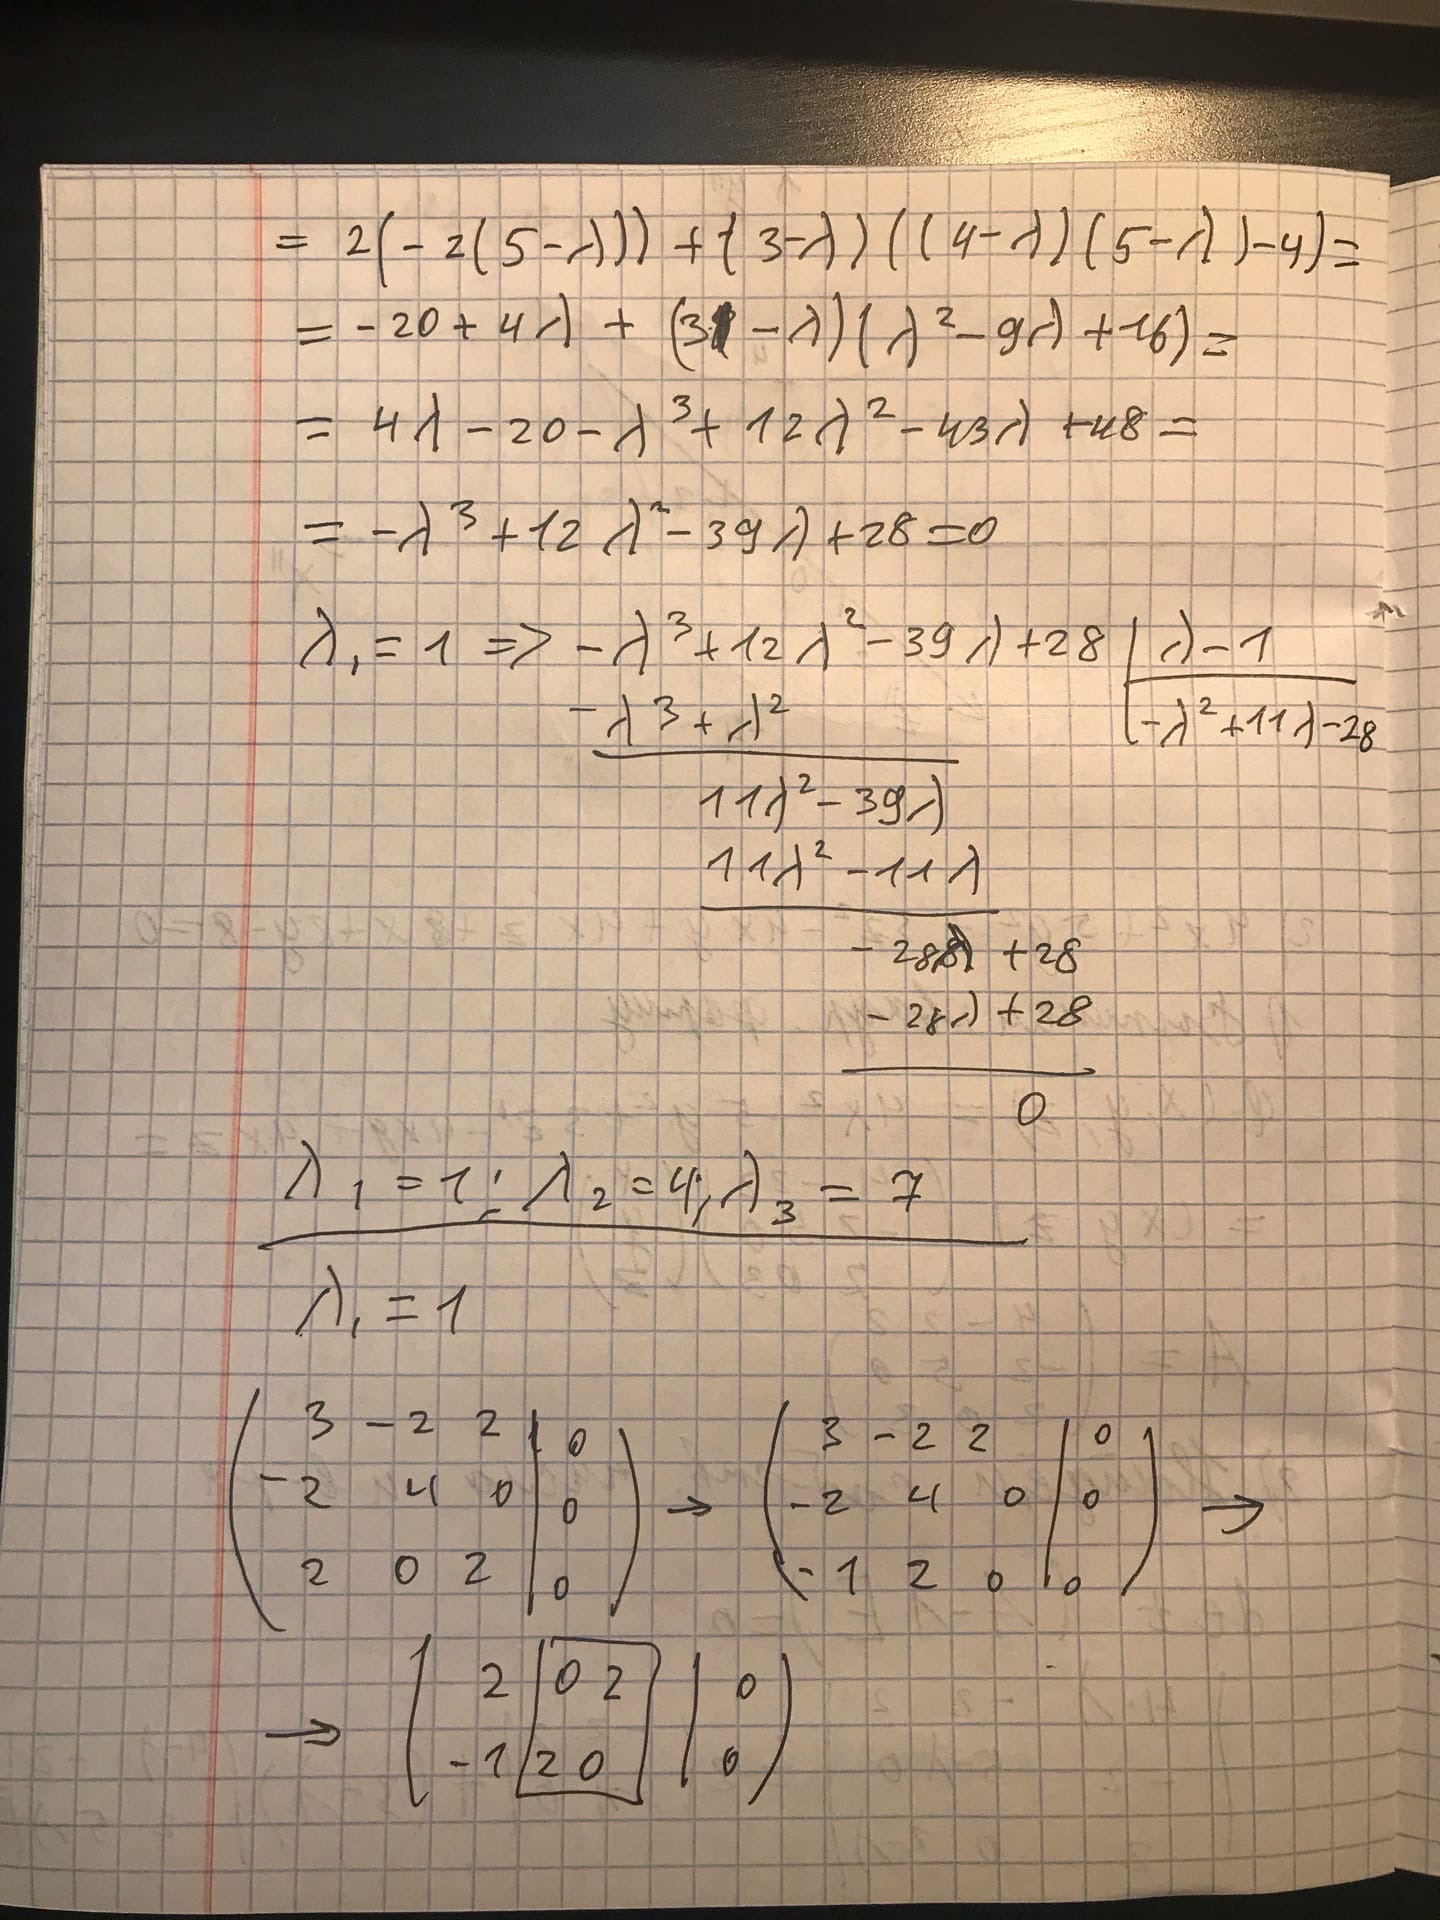 = 2(-2(5-λ)) + (3-λ)((4-λ)(5-λ)-4) =
= -20 + 4λ + (3-λ)(λ² - 9λ + 16) =
= 4λ - 20 - λ³ + 12λ² - 43λ + 48 =
= -λ³ + 12λ² - 39λ + 28 = 0
λ₁ = 1 => -λ³ + 12λ² - 39λ + 28 | λ - 1
-λ³ + λ² | -λ² + 11λ - 28
11λ² - 39λ
11λ² - 11λ
-28λ + 28
-28λ + 28
0
λ₁ = 1; λ₂ = 4; λ₃ = 7
λ₁ = 1
( 3 -2 2 | 0 ) ( 3 -2 2 | 0 )
( -2 4 0 | 0 ) → ( -2 4 0 | 0 ) →
( 2 0 2 | 0 ) ( -1 2 0 | 0 )
( 2 0 2 | 0 )
→ ( -1 2 0 | 0 )